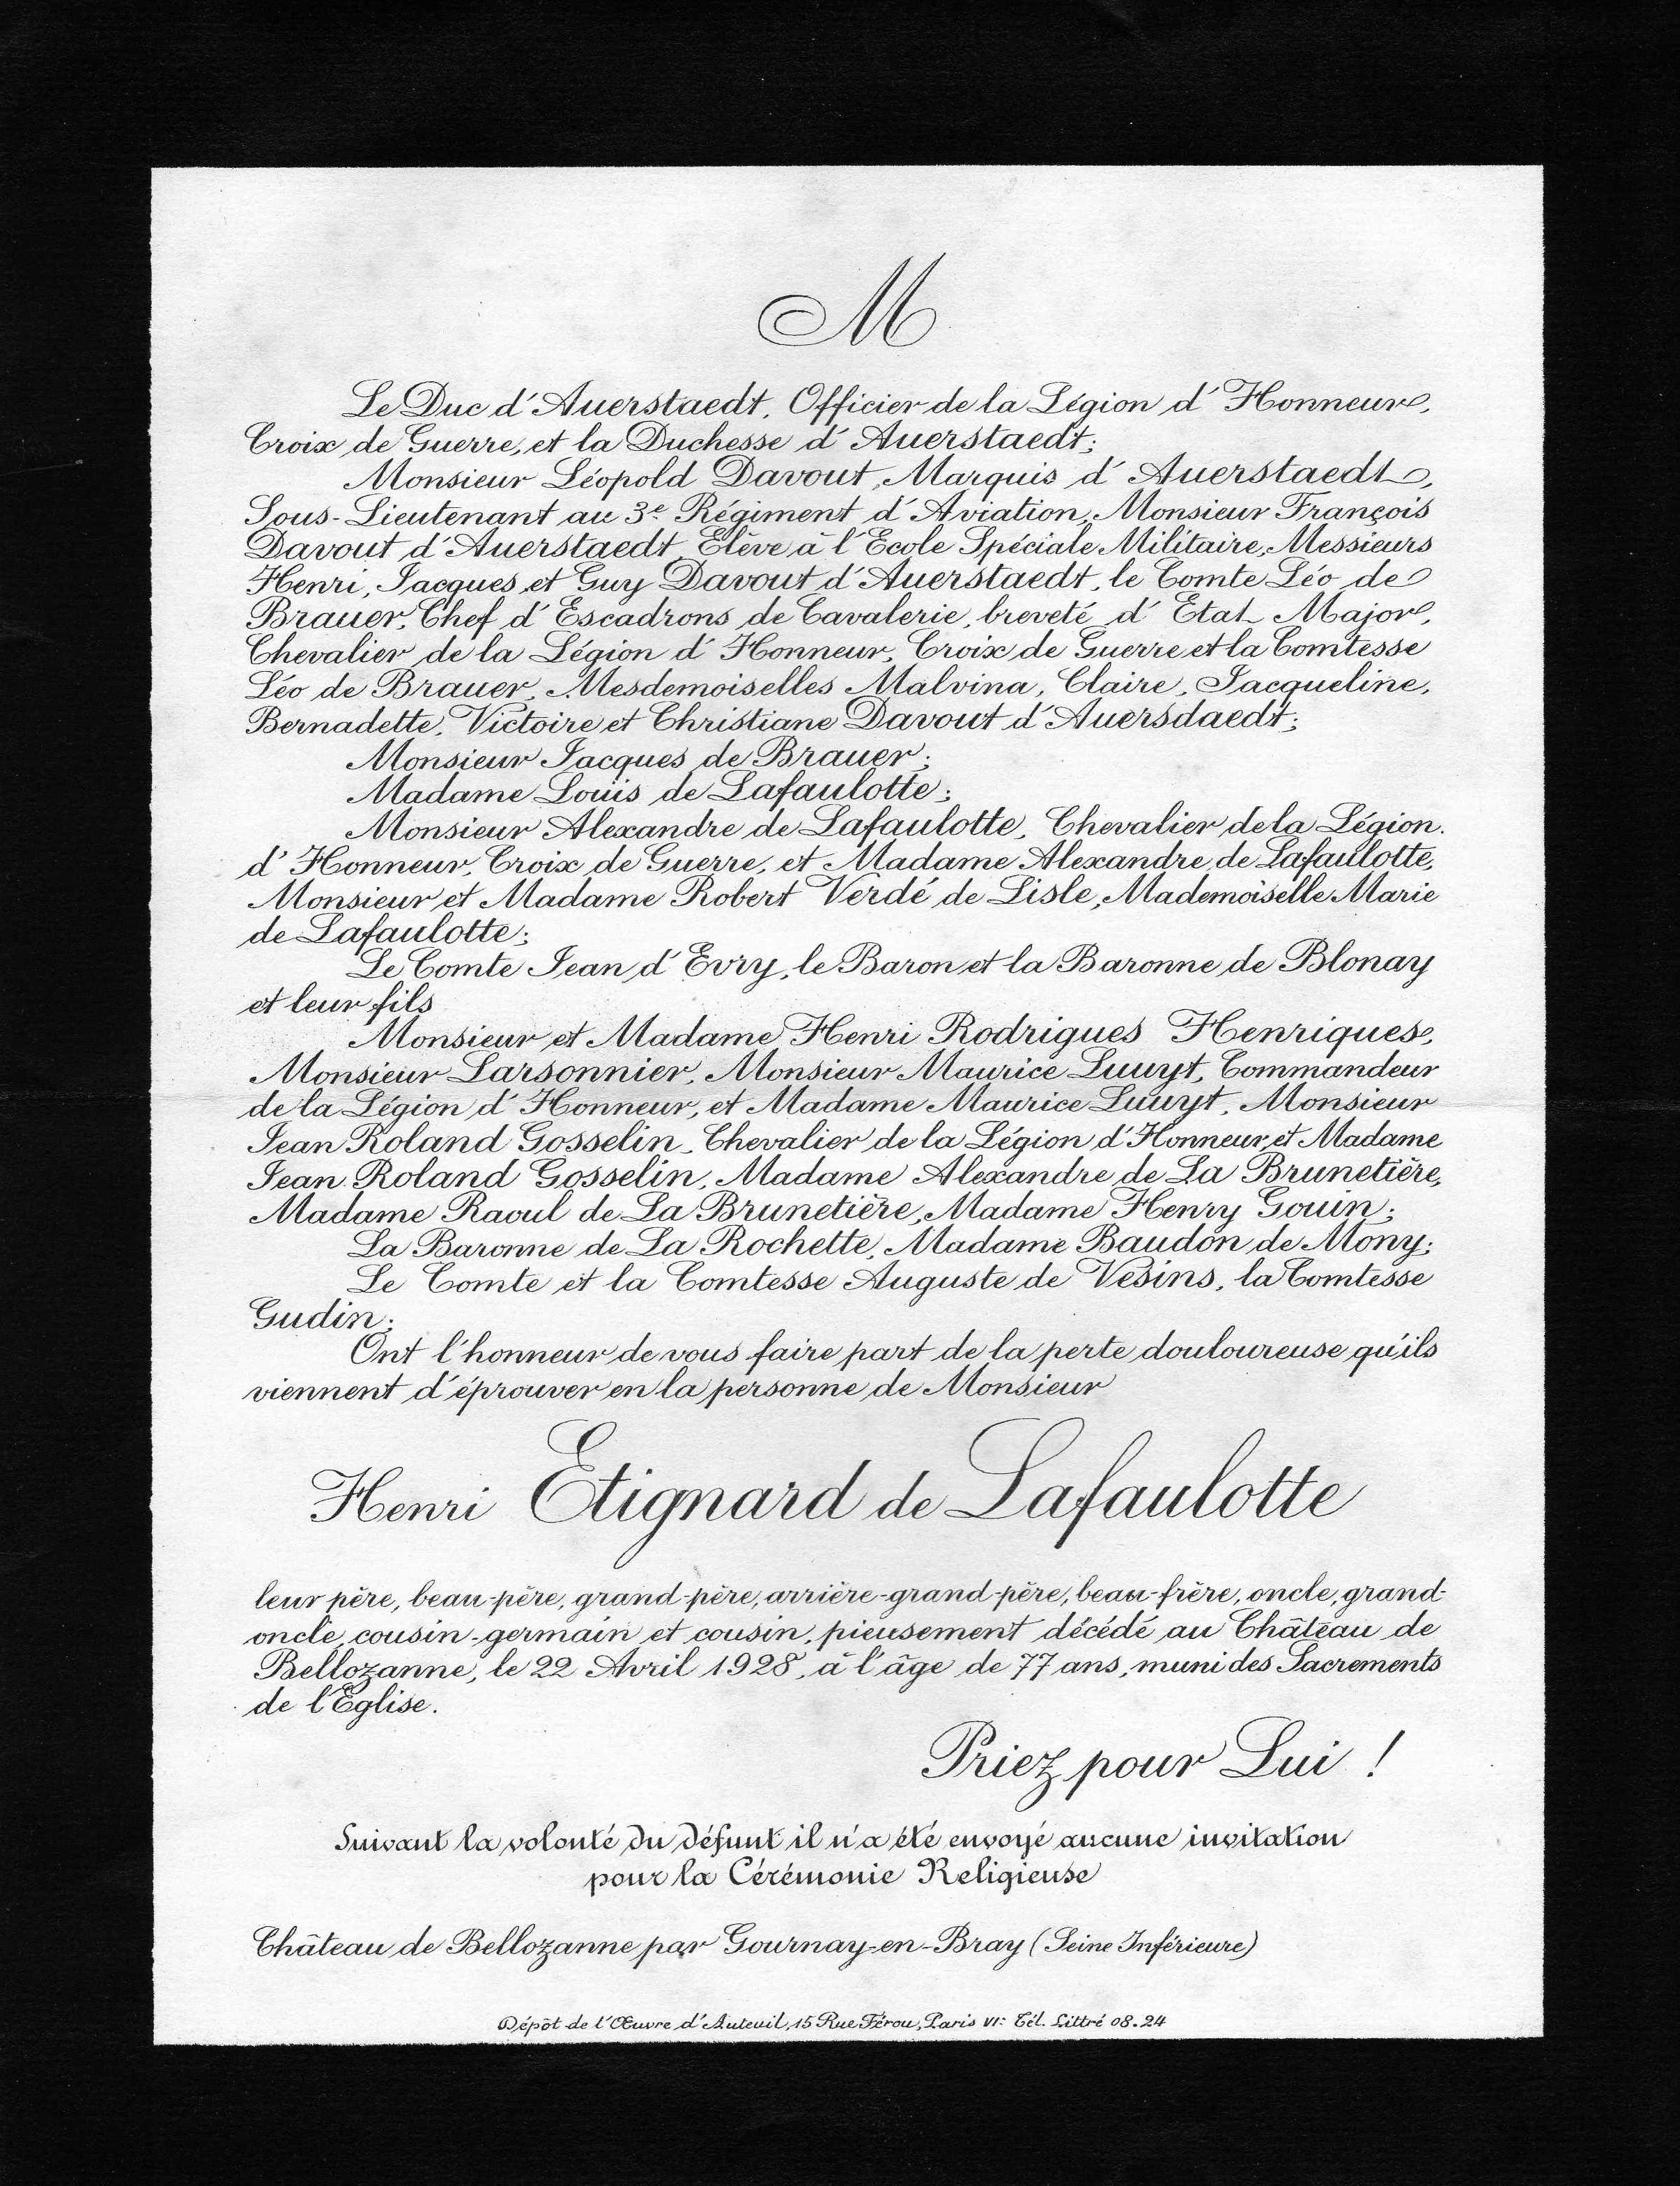 M
Le Duc d'Auerstaedt, Officier de la Légion d'Honneur,
Croix de Guerre, et la Duchesse d'Auerstaedt;
Monsieur Léopold Davout, Marquis d'Auerstaedt,
Sous-Lieutenant au 3e Régiment d'Aviation, Monsieur François
Davout d'Auerstaedt, Elève à l'Ecole Spéciale Militaire, Messieurs
Henri, Jacques et Guy Davout d'Auerstaedt, le Comte Léo de
Brauer, Chef d'Escadrons de Cavalerie, breveté d'Etat-Major,
Chevalier de la Légion d'Honneur, Croix de Guerre et la Comtesse
Léo de Brauer, Mesdemoiselles Malvina, Claire, Jacqueline,
Bernadette, Victoire et Christiane Davout d'Auersdaedt;
Monsieur Jacques de Brauer;
Madame Louis de Lafaulotte;
Monsieur Alexandre de Lafaulotte, Chevalier de la Légion
d'Honneur, Croix de Guerre, et Madame Alexandre de Lafaulotte,
Monsieur et Madame Robert Verdé de Lisle, Mademoiselle Marie
de Lafaulotte;
Le Comte Jean d'Evry, le Baron et la Baronne de Blonay
et leur fils
Monsieur et Madame Henri Rodrigues Henriques,
Monsieur Larsonnier, Monsieur Maurice Luuyt, Commandeur
de la Légion d'Honneur, et Madame Maurice Luuyt, Monsieur
Jean Roland Gosselin, Chevalier de la Légion d'Honneur et Madame
Jean Roland Gosselin, Madame Alexandre de La Brunetière,
Madame Raoul de La Brunetière, Madame Henry Gouin;
La Baronne de La Rochette, Madame Baudon de Mony;
Le Comte et la Comtesse Auguste de Vesins, la Comtesse
Gudin;
Ont l'honneur de vous faire part de la perte douloureuse qu'ils
viennent d'éprouver en la personne de Monsieur
Henri Etignard de Lafaulotte
leur père, beau-père, grand-père, arrière-grand-père, beau-frère, oncle, grand-
oncle, cousin-germain et cousin, pieusement décédé au Château de
Bellozanne, le 22 Avril 1928, à l'âge de 77 ans, muni des Sacrements
de l'Eglise.
Priez pour Lui !
Suivant la volonté du défunt il n'a été envoyé aucune invitation
pour la Cérémonie Religieuse
Château de Bellozanne par Gournay-en-Bray (Seine Inférieure)
Dépôt de l'Œuvre d'Auteuil, 15 Rue Férou, Paris VI: Tél. Littré 08.24